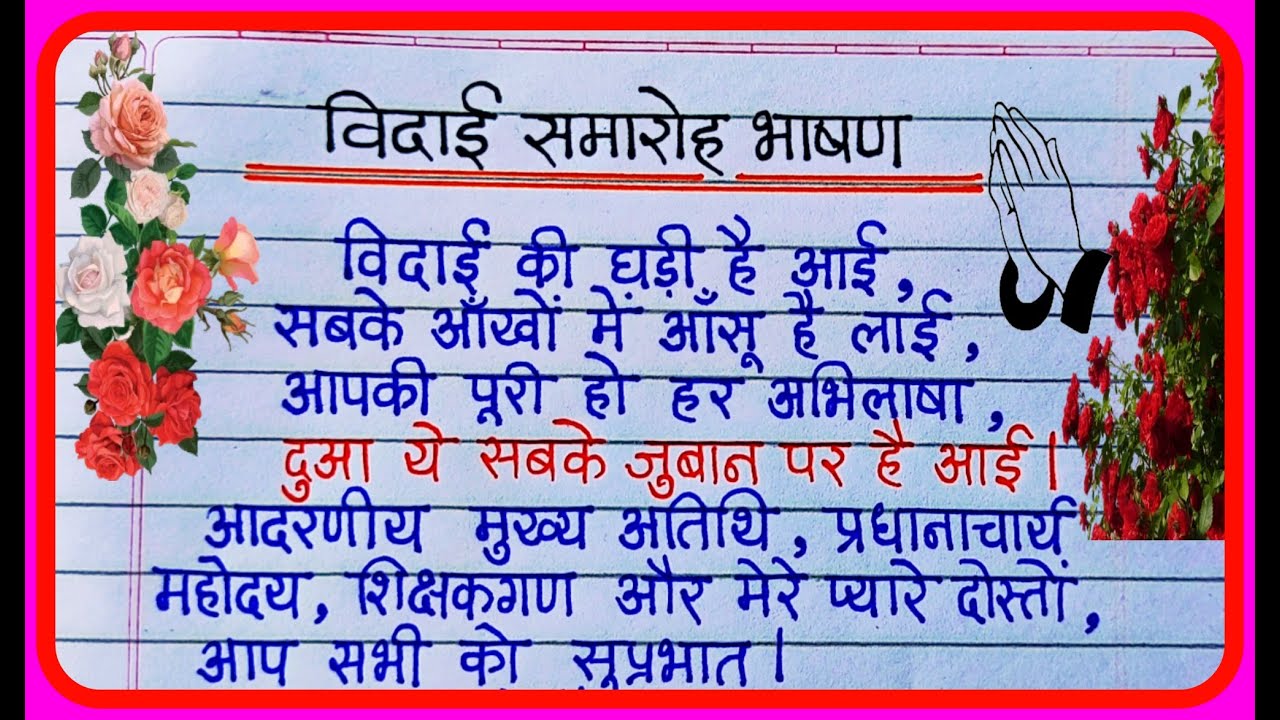 विदाई समारोह भाषण
विदाई की घड़ी है आई,
सबके आँखों में आँसू है लाई,
आपकी पूरी हो हर अभिलाषा,
दुआ ये सबके जुबान पर है आई।
आदरणीय मुख्य अतिथि, प्रधानाचार्य
महोदय, शिक्षकगण और मेरे प्यारे दोस्तों,
आप सभी को सुप्रभात।